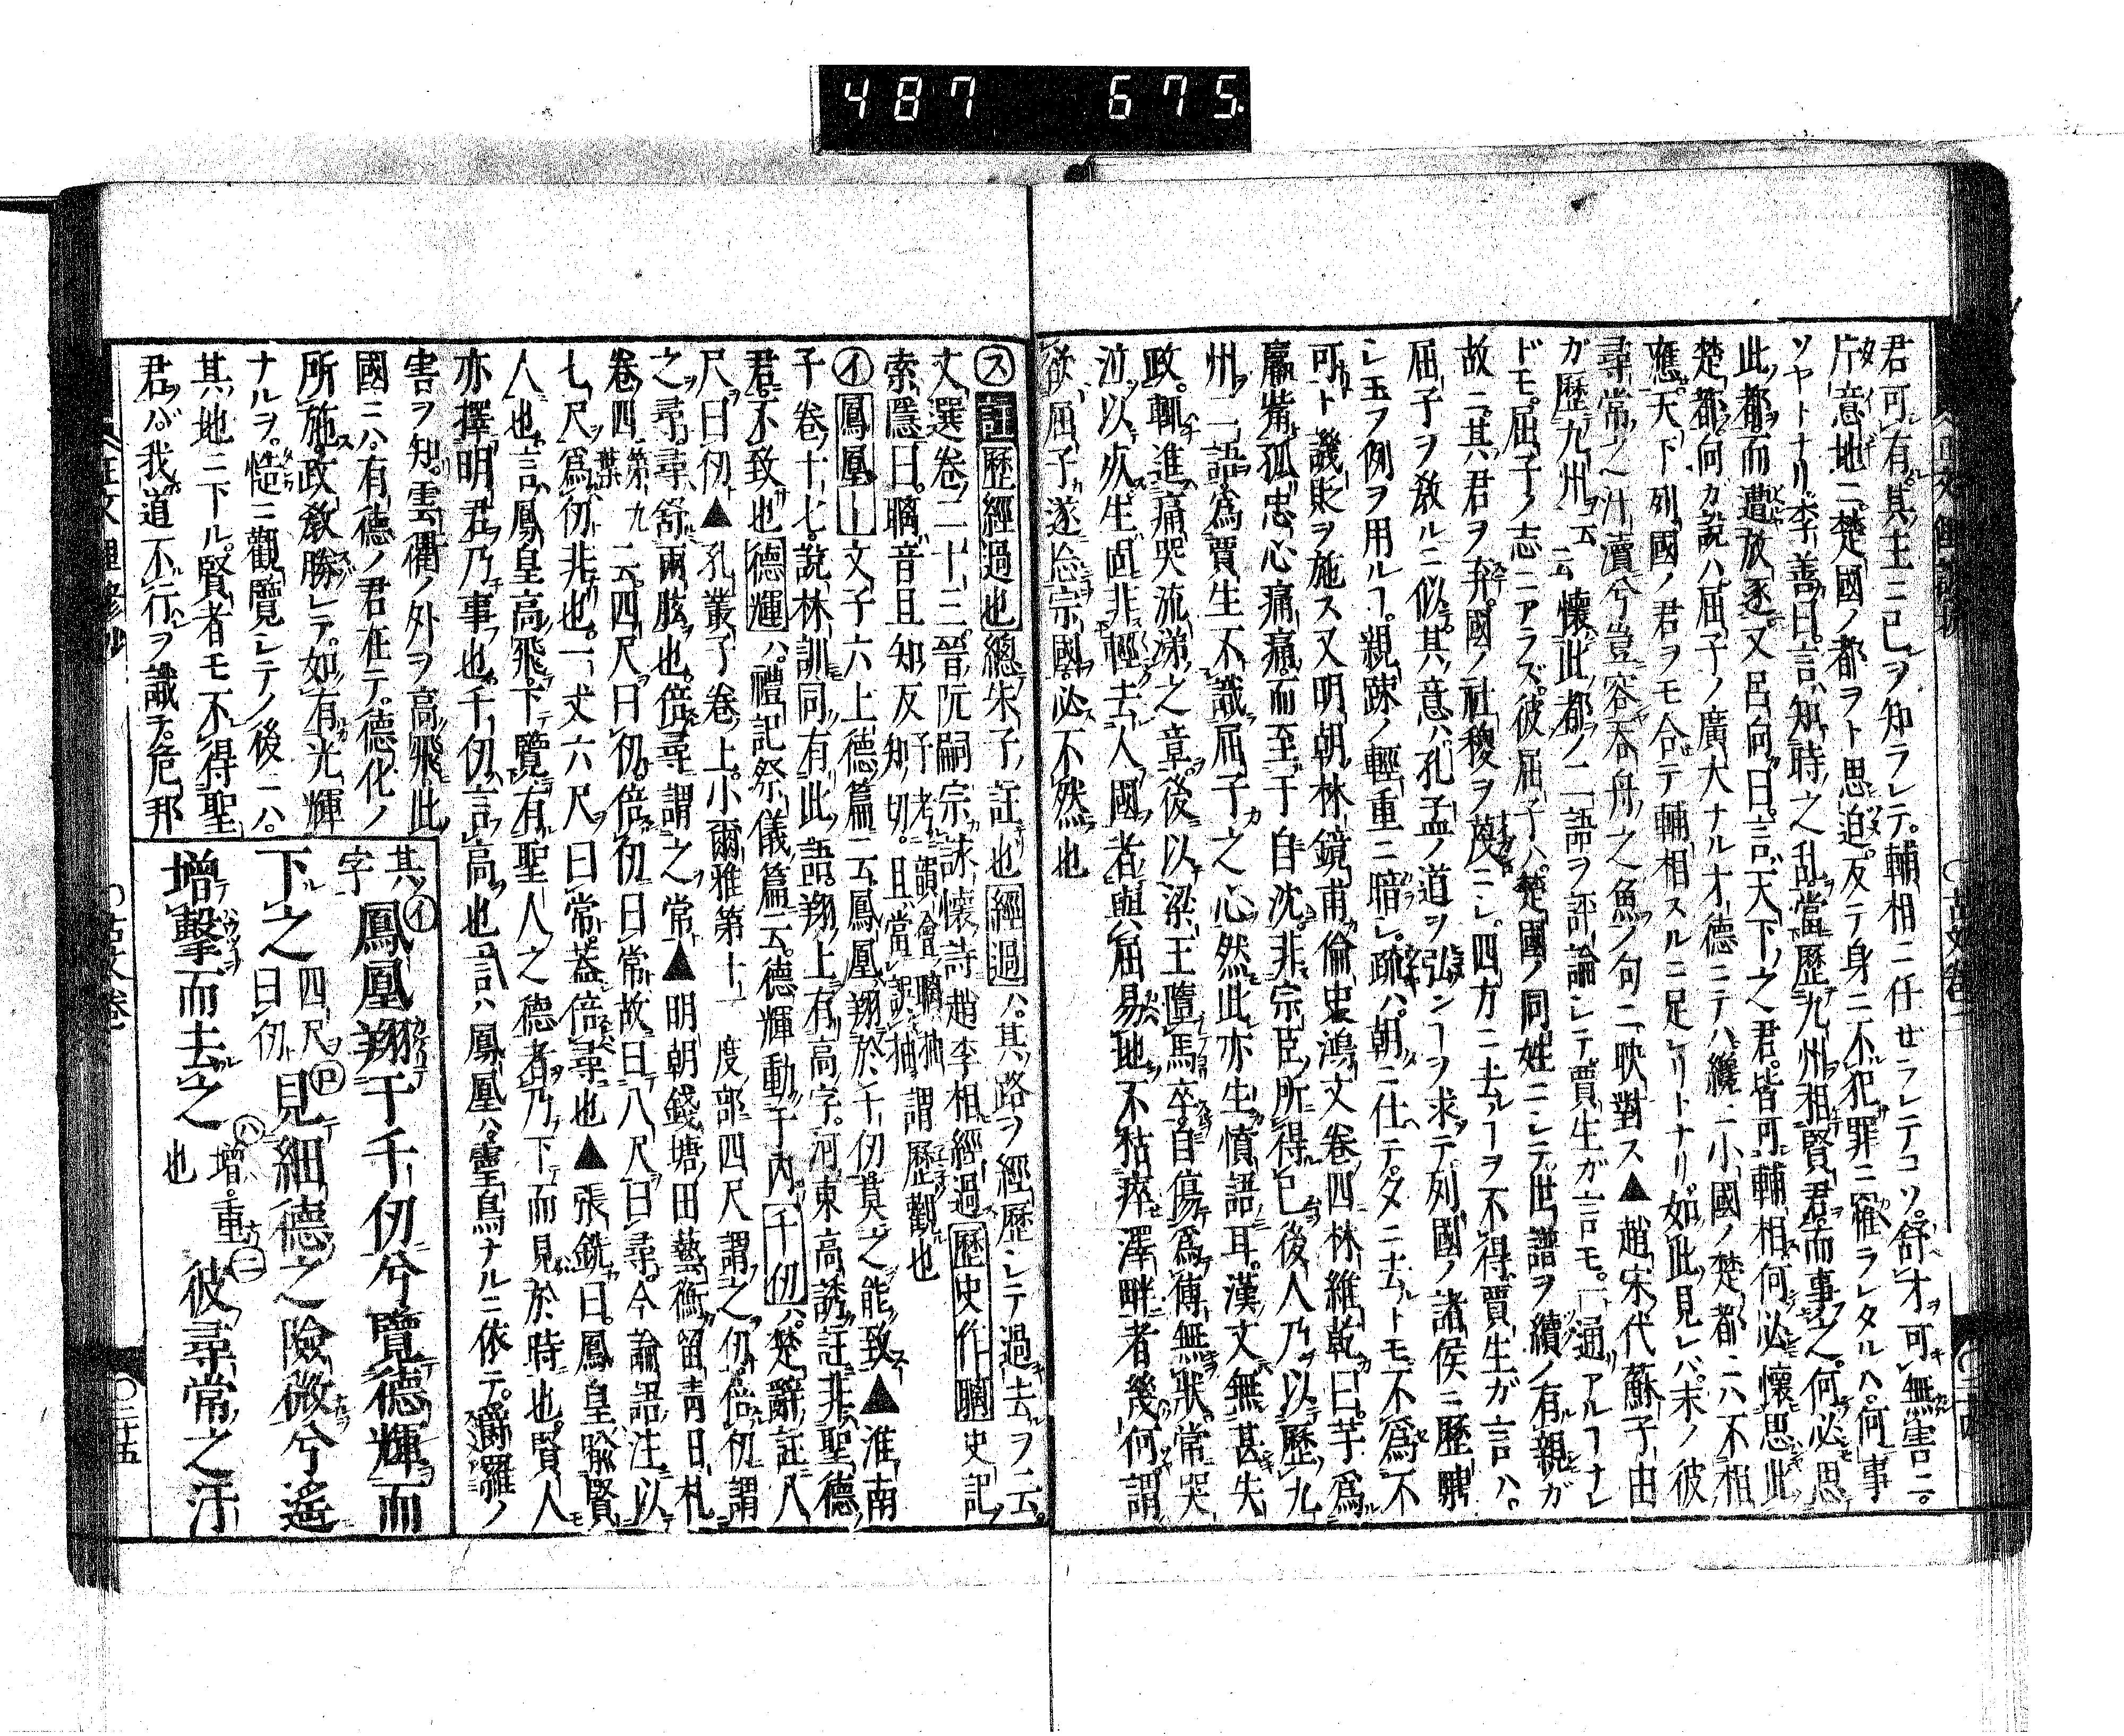 487 675
君可有其主ニ已ヲ知ラレテ輔相ニ任ゼラレテコソ舒才可無害ニ
片意地ニ楚國ノ都ヲト思迫反テ身ニ不犯罪ニ罹ラレタルハ何事
ソヤトナリ李善曰言知時之乱當歷九州相賢君而事之何必思
此都而遭放逐又呂向曰言天下之君皆可輔相何必懷思此
楚都何ガ說ハ屈子ノ廣大ナル才德ニテハ纔ニ小國ノ楚都ニハ不相
應天下列國ノ君ヲモ合テ輔相スルニ足レリトナリ如此見レバ末ノ彼
尋常之汙瀆兮豈容吞舟之魚ノ句ニ映對ス▲趙宋代蘇子由
ガ歷九州云云懷此都ノ二語ヲ評論シテ賈生ガ言モ一通アルヿナレ
ドモ屈子ノ志ニアラズ彼屈子ハ楚國ノ同姓ニシテ世譜ヲ續ノ有親ガ
故ニ其君ヲ弃國ノ社稷ヲ蔑ニシ四方ニ去ルヿヲ不得賈生ガ言ハ
屈子ヲ敎ルニ似其意ハ孔孟ノ道ヲ弘ンヿヲ求テ列國ノ諸侯ニ歷聘
レ玉ヲ例ヲ用ルヿ親踈ノ輕重ニ暗シ疏ハ朝ニ仕テ夕ニ去ルトモ不爲不
可ト譏貶ヲ施ス又明朝林鏡甫倫史鴻文卷四林維乾曰芋爲
羸觜孤忠心痛痛而至于自沈非宗臣所得已後人乃以歷九
州二語爲賈生不識屈子之心然此亦生憤語耳漢文無甚失
政輒進痛哭流涕之章後以梁王墮馬卒自傷爲傅無狀常哭
泣以歾生固非輕去人國者與屈易地不枯瘁澤畔者幾何謂
欲屈子遂忘宗國必不然也
㋜註歷經過也總朱子註也經過ハ其路ヲ經歷シテ過去ヲ云
文選卷二十三晉阮嗣宗詠懷詩趙李相經過歷史作瞝史記
索隱曰瞝音丑知反予考韻會瞝抽知切丑當誤抽謂歷觀也
㋑鳳凰丨文子六上德篇云鳳凰翔於千仞莫之能致▲淮南
子卷十七說林訓同有此語翔上有高字河東高誘註非聖德
君不致也德輝ハ禮記祭儀篇云德輝動于內千仞ハ楚辭註八
尺曰仞▲孔叢子卷上小爾雅第十一度部四尺謂之仞倍仞謂
之尋尋舒兩肱也倍尋謂之常▲明朝錢塘田藝衡留靑日札
卷四第九葉云四尺曰仞倍仞曰常故曰八尺曰尋今論語注以
七尺爲仞非也一丈六尺曰常蓋倍尋也▲張銑曰鳳皇喩賢
人也言鳳皇高飛下覽有聖人之德者乃下而見於時也賢人
亦擇明君乃事也千仞言高也言ハ鳳凰ハ靈鳥ナルニ依テ爵羅ノ
害ヲ知雲衢ノ外ヲ高飛此
國ニハ有德ノ君在テ德化ノ
所施政敎勝レテ如有光輝
ナルヲ慥ニ觀覽シテノ後ニハ
其地ニ下ル賢者モ不得聖
君バ我道不行ヲ識テ危邦
其ノ字㋑鳳凰翔于千仞兮覽德輝而
下之四尺曰仞㋺見細德之險微兮遙
增擊而去之㋩增重也㊁彼尋常之汙